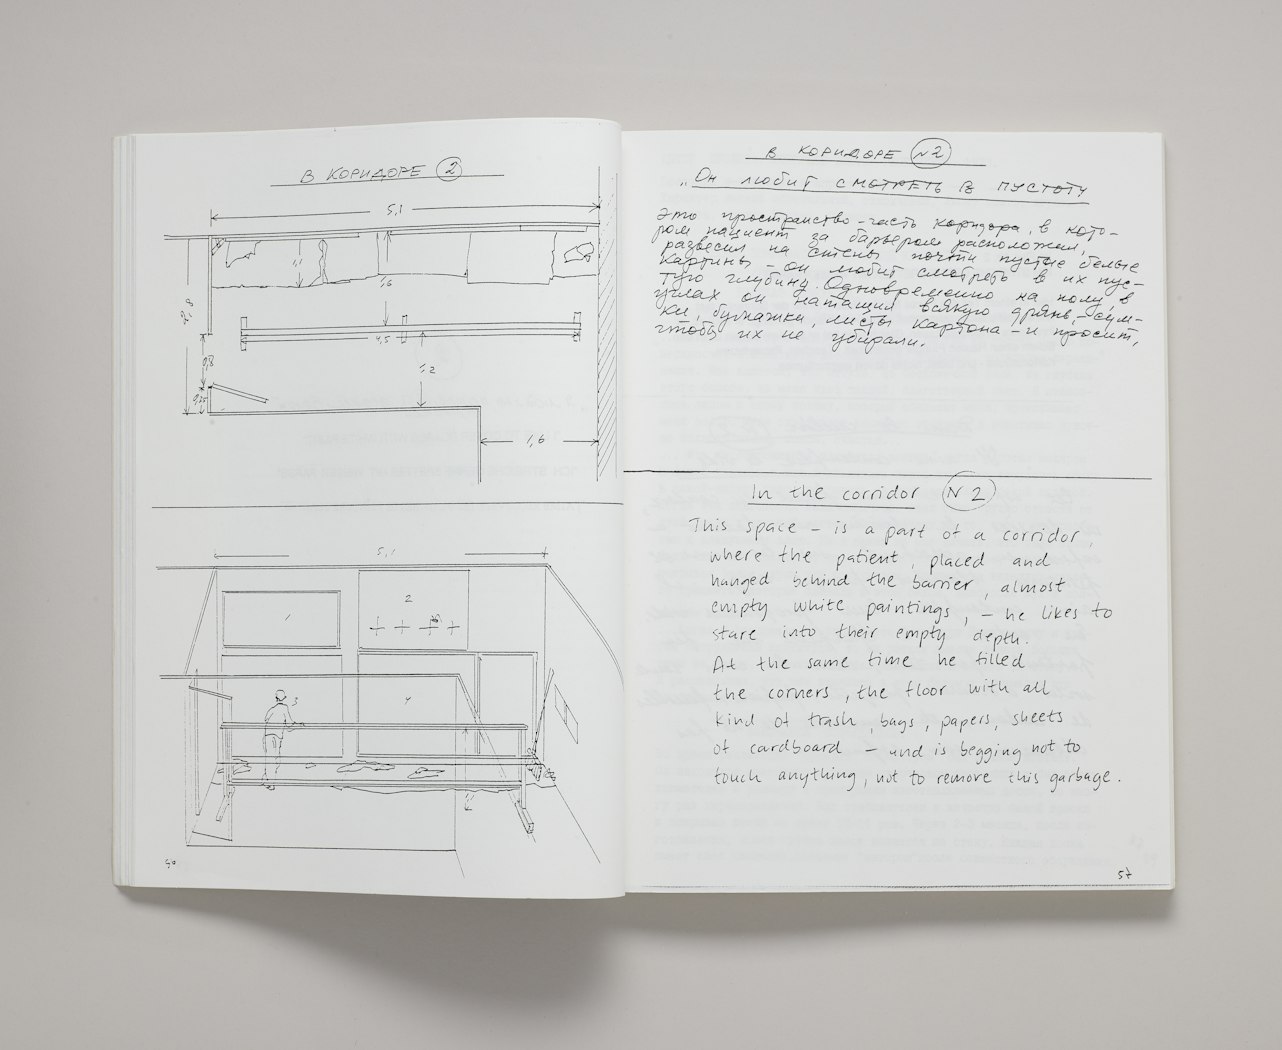 В КОРИДОРЕ 2
5,1
1,6
4,5
1,2
0,8
0,25
1,6
5,1
1
2
3
4
В КОРИДОРЕ N2
„Он любит смотреть в пустоту
Это пространство – часть коридора, в кото-
ром пациент за барьером расположил,
развесил на стены почти пустые белые
картины – он любит смотреть в их пус-
тую глубину. Одновременно на полу, в
углах он натащил всякую дрянь, – сум-
ки, бумажки, листы картона – и просит,
чтобы их не убирали.
In the corridor N2
This space – is a part of a corridor,
where the patient, placed and
hunged behind the barrier, almost
empty white paintings, – he likes to
stare into their empty depth.
At the same time he filled
the corners, the floor with all
kind of trash, bags, papers, sheets
of cardboard – and is begging not to
touch anything, not to remove this garbage.
57